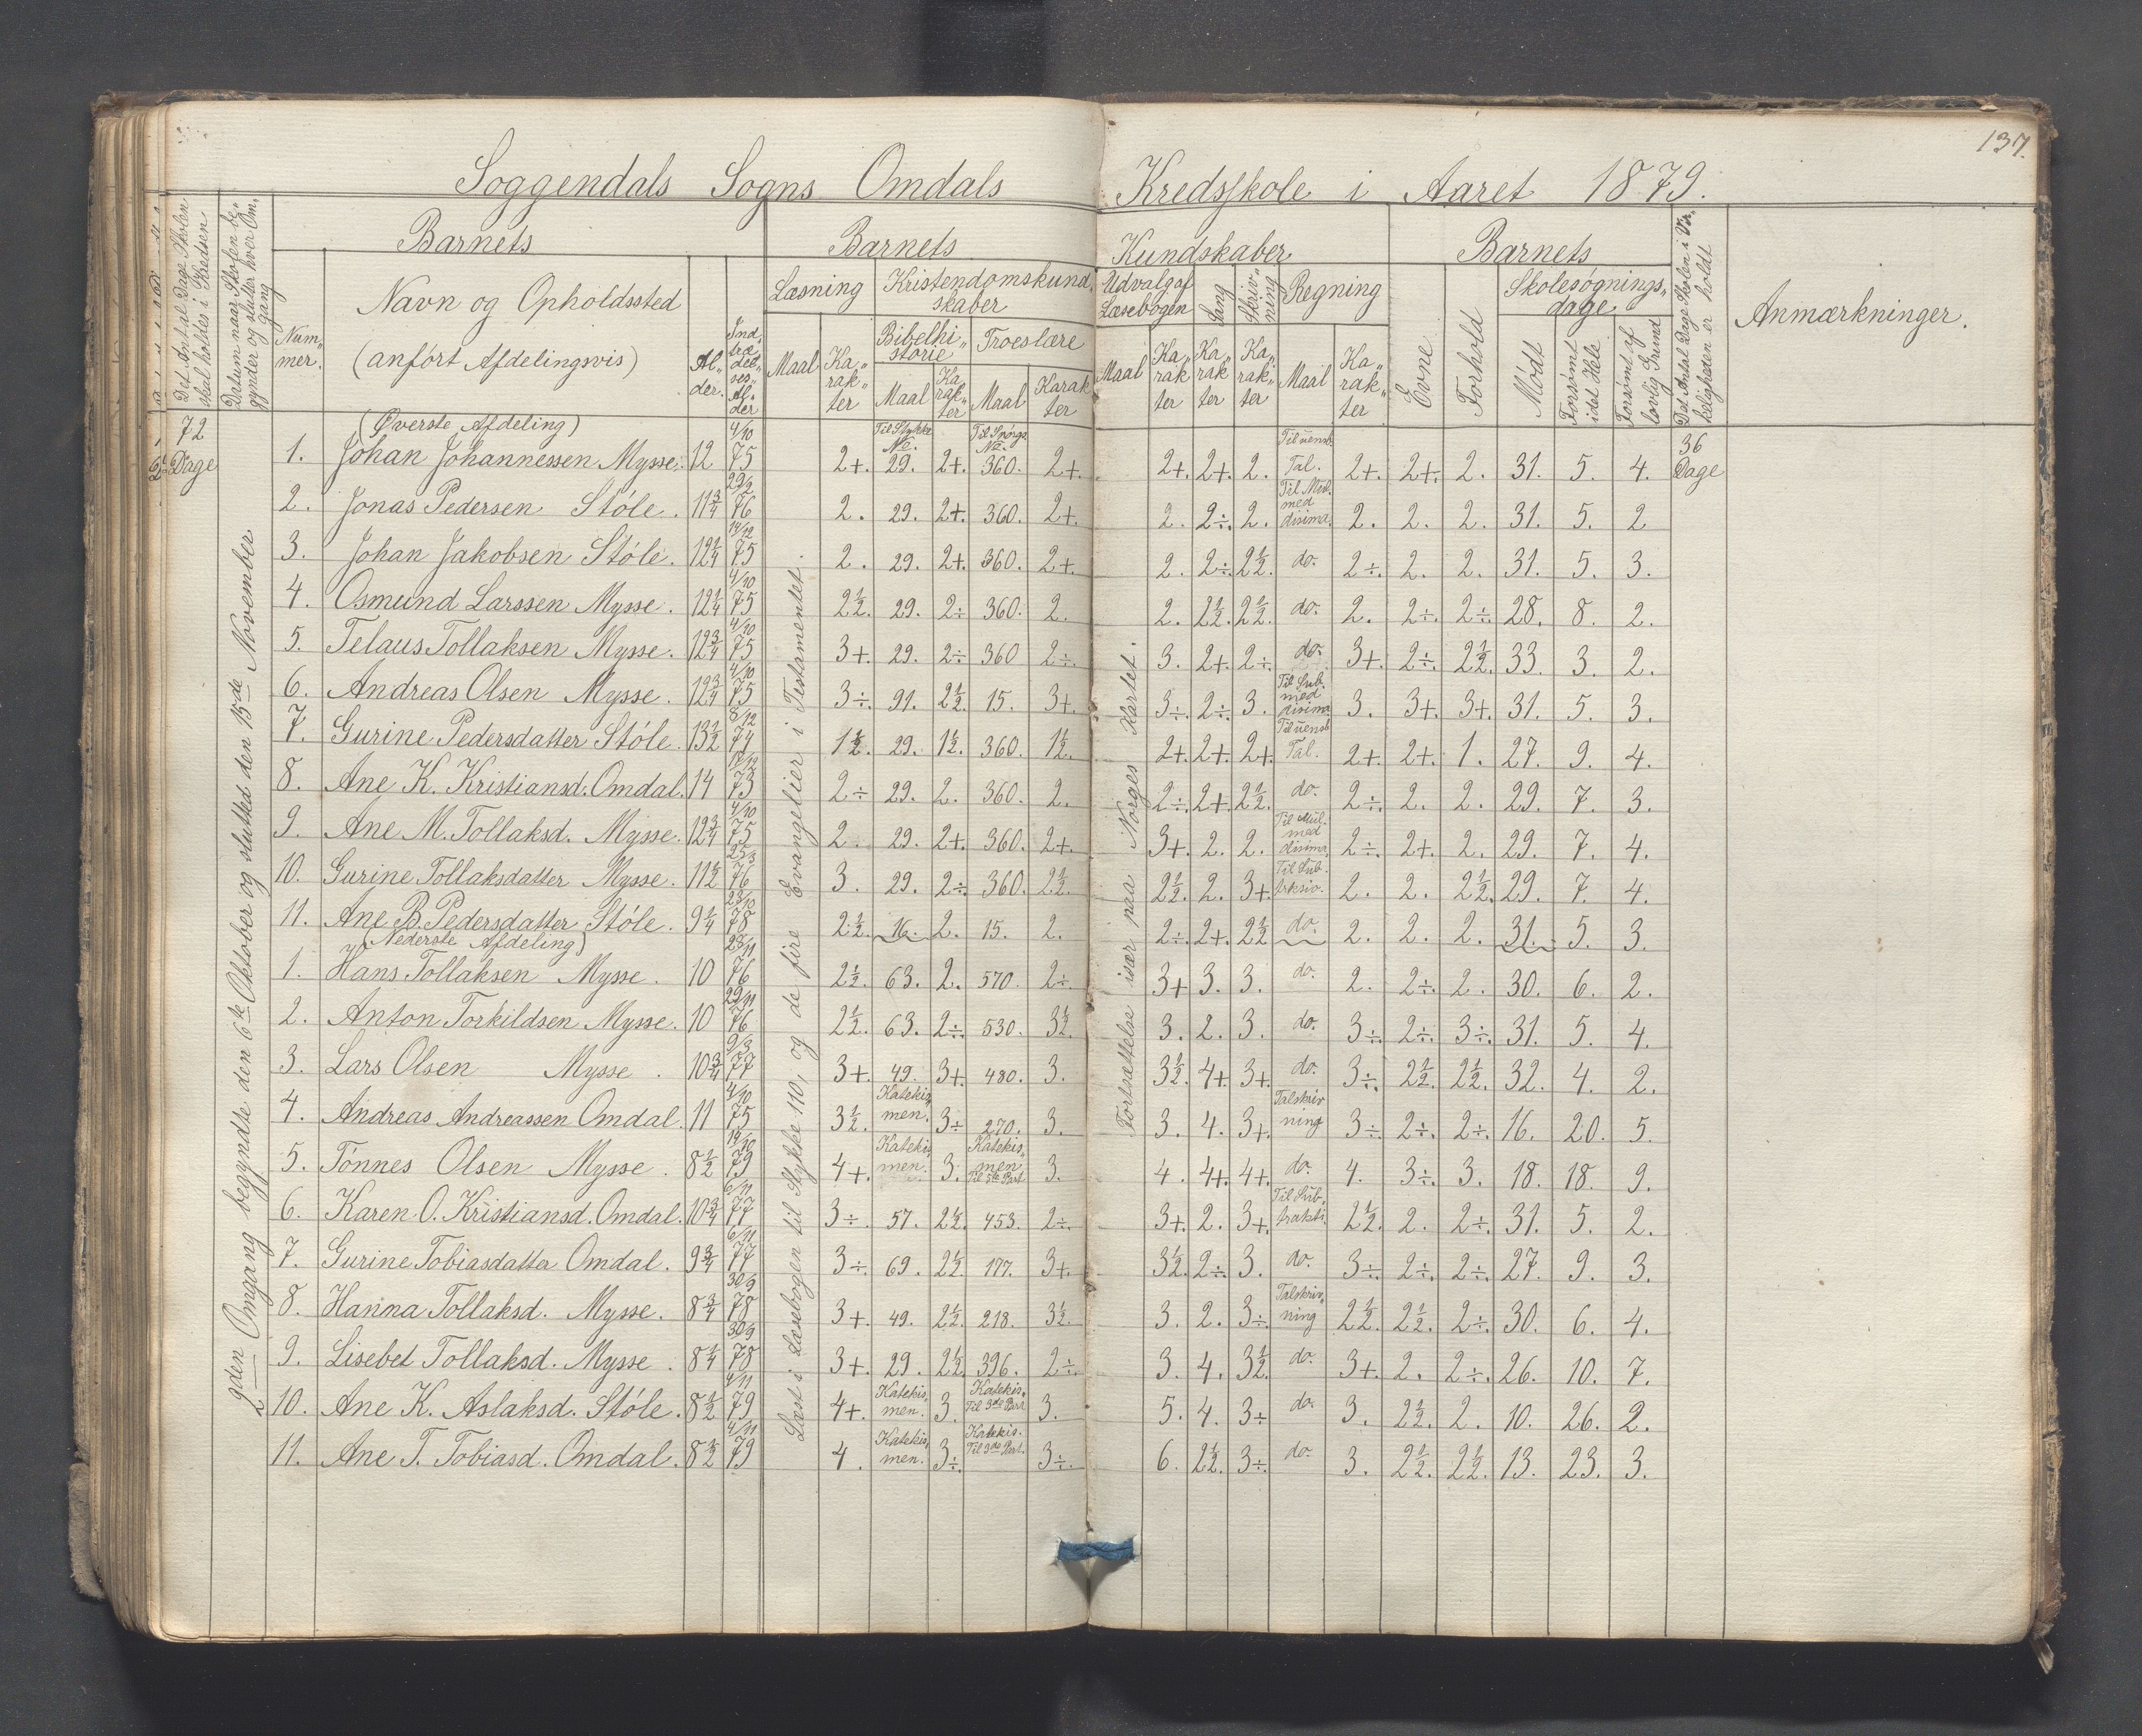 137.
Soggendals Sogns Omdals Kredsskole i Aaret 1879.
Det Antal Dage Skolen skal holdes i Kredsen
Datum naar Skolen begynder og slutter hver Omgang
Barnets
Barnets
Kundskaber
Barnets
Det Antal Dage Skolen i Virkeligheden er holdt
Anmærkninger.
Nummer.
Navn og Opholdssted
(anført Afdelingsvis)
Alder.
Indtrædelsesalder
Læsning
Kristendomskundskaber
Udvalg af Læsebogen
Sang
Skrivning
Regning
Evne
Forhold
Skolesøgningsdage
Bibelhistorie
Troeslære
Mødt
Forsømt i det Hele
Forsømt af lovlig Grund
Maal Karakter Maal Karakter Maal Karakter Maal Karakter Karakter Karakter Maal Karakter
72 Dage
36 Dage
2den Omgang begyndte den 6te Oktober og slutted den 15de November
Læst i Læsebogen til Stykke 110, og de fire Evangelier i Testamentet.
Fortsættelse især paa Norges Kartet.
(Øverste Afdeling)
Til Stykke No. Til Spørgs. No.
1. Johan Johannessen Mysse. 12 4/10 75 2+. 29. 2+. 360. 2+. 2+. 2+. 2. Til uensb. Tal. 2+. 2+. 2. 31. 5. 4.
2. Jonas Pedersen Støle. 11 3/4 29/2 76 2. 29. 2+. 360. 2+. 2. 2÷. 2. Til Mul. med disima. 2. 2. 2. 31. 5. 2
3. Johan Jakobsen Støle. 12 1/4 14/12 75 2. 29. 2+. 360. 2+. 2. 2÷. 2 1/2. do. 2÷. 2. 2. 31. 5. 3.
4. Osmund Larssen Mysse. 12 1/4 4/10 75 2 1/2. 29. 2÷ 360. 2. 2. 2 1/2. 2 1/2. do. 2. 2÷. 2÷. 28. 8. 2.
5. Telaus Tollaksen Mysse. 12 3/4 4/10 75 3+. 29. 2÷ 360 2÷. 3. 2+. 2÷. do. 3+. 2÷. 2 1/2. 33. 3. 2.
6. Andreas Olsen Mysse. 12 3/4 4/10 75 3÷. 91. 2 1/2. 15. 3+. 3÷. 2÷. 3. Til Sub. med disima 3. 3+. 3+. 31. 5. 3.
7. Gurine Pedersdatter Støle. 13 1/2 8/12 74 1 1/2. 29. 1 1/2. 360. 1 1/2. 2+. 2+. 2+. Til uensb Tal. 2+. 2+. 1. 27. 9. 4.
8. Ane K. Kristiansd. Omdal. 14 17/12 73 2÷ 29. 2. 360. 2. 2÷. 2+. 2 1/2. do. 2÷. 2. 2. 29. 7. 3.
9. Ane M. Tollaksd. Mysse. 12 3/4 4/10 75 2. 29. 2+. 360. 2+. 3+. 2. 2. Til Mul. med disima. 2÷. 2+. 2. 29. 7. 4.
10. Gurine Tollaksdatter Mysse. 11 1/2 25/3 76 3. 29. 2÷ 360. 2 1/2. 2 1/2. 2. 3+. Til Sub. 2. 2. 2 1/2. 29. 7. 4.
11. Ane B. Pedersdatter Støle. 9 1/4 23/10 78 2 1/2. 16. 2. 15. 2. 2÷. 2+. 2 1/2 do. 2. 2. 2. 31. 5. 3.
(Nederste Afdeling)
1. Hans Tollaksen Mysse. 10 28/11 76 2 1/2. 63. 2. 570. 2÷ 3+ 3. 3. do. 2. 2÷. 2. 30. 6. 2.
2. Anton Torkildsen Mysse. 10 29/11 76 2 1/2. 63. 2÷. 530. 3 1/2. 3. 2. 3. do. 3÷ 2÷. 3÷. 31. 5. 4.
3. Lars Olsen Mysse. 10 3/4 2/3 77 3+. 49. 3+. 480. 3. 3 1/2. 4+. 3+. do. 3÷. 2 1/2. 2 1/2. 32. 4. 2.
4. Andreas Andreassen Omdal. 11 4/10 75 3 1/2. Katekismen. 3÷ 270. 3. 3. 4. 3+. Talskrivning 3÷. 2÷. 2÷. 16. 20. 5.
5. Tønnes Olsen Mysse. 8 1/2 14/10 79 4+. Katekismen. 3. Katekismen Til 5te Part 3. 4. 4+. 4+. do. 4. 3÷. 3. 18. 18. 9.
6. Karen O. Kristiansd. Omdal. 10 3/4 6/11 77 3÷. 57. 2 1/2. 453. 2÷. 3+. 2. 3+. Til Subtrakti. 2 1/2. 2. 2÷. 31. 5. 2.
7. Gurine Tobiasdatter Omdal. 9 3/4 6/11 77 3÷. 69. 2 1/2. 177. 3+. 3 1/2. 2÷. 3. do. 3÷. 2÷. 2÷. 27. 9. 3.
8. Hanna Tollaksd. Mysse. 8 3/4 30/9 78 3+. 49. 2 1/2. 218. 3 1/2. 3. 2. 3÷. Talskrivning 2 1/2. 2 1/2. 2÷. 30. 6. 4.
9. Lisebet Tollaksd. Mysse. 8 1/4 30/9 78 3+. 29. 2 1/2. 396. 2÷. 3. 4. 3 1/2. do. 3+. 2. 2÷. 26. 10. 7.
10. Ane K. Aslaksd. Støle. 8 1/2 4/11 79 4+. Katekismen. 3. Katekis. Til 3de Part 3. 5. 4. 3÷ do. 3. 2 1/2. 2. 10. 26. 2.
11. Ane T. Tobiasd. Omdal. 8 1/2 4/11 79 4. Katekismen. 3÷. Katekis. Til 3de Part. 3÷. 6. 2 1/2. 3÷. do. 3. 2 1/2. 2 1/2. 13. 23. 3.